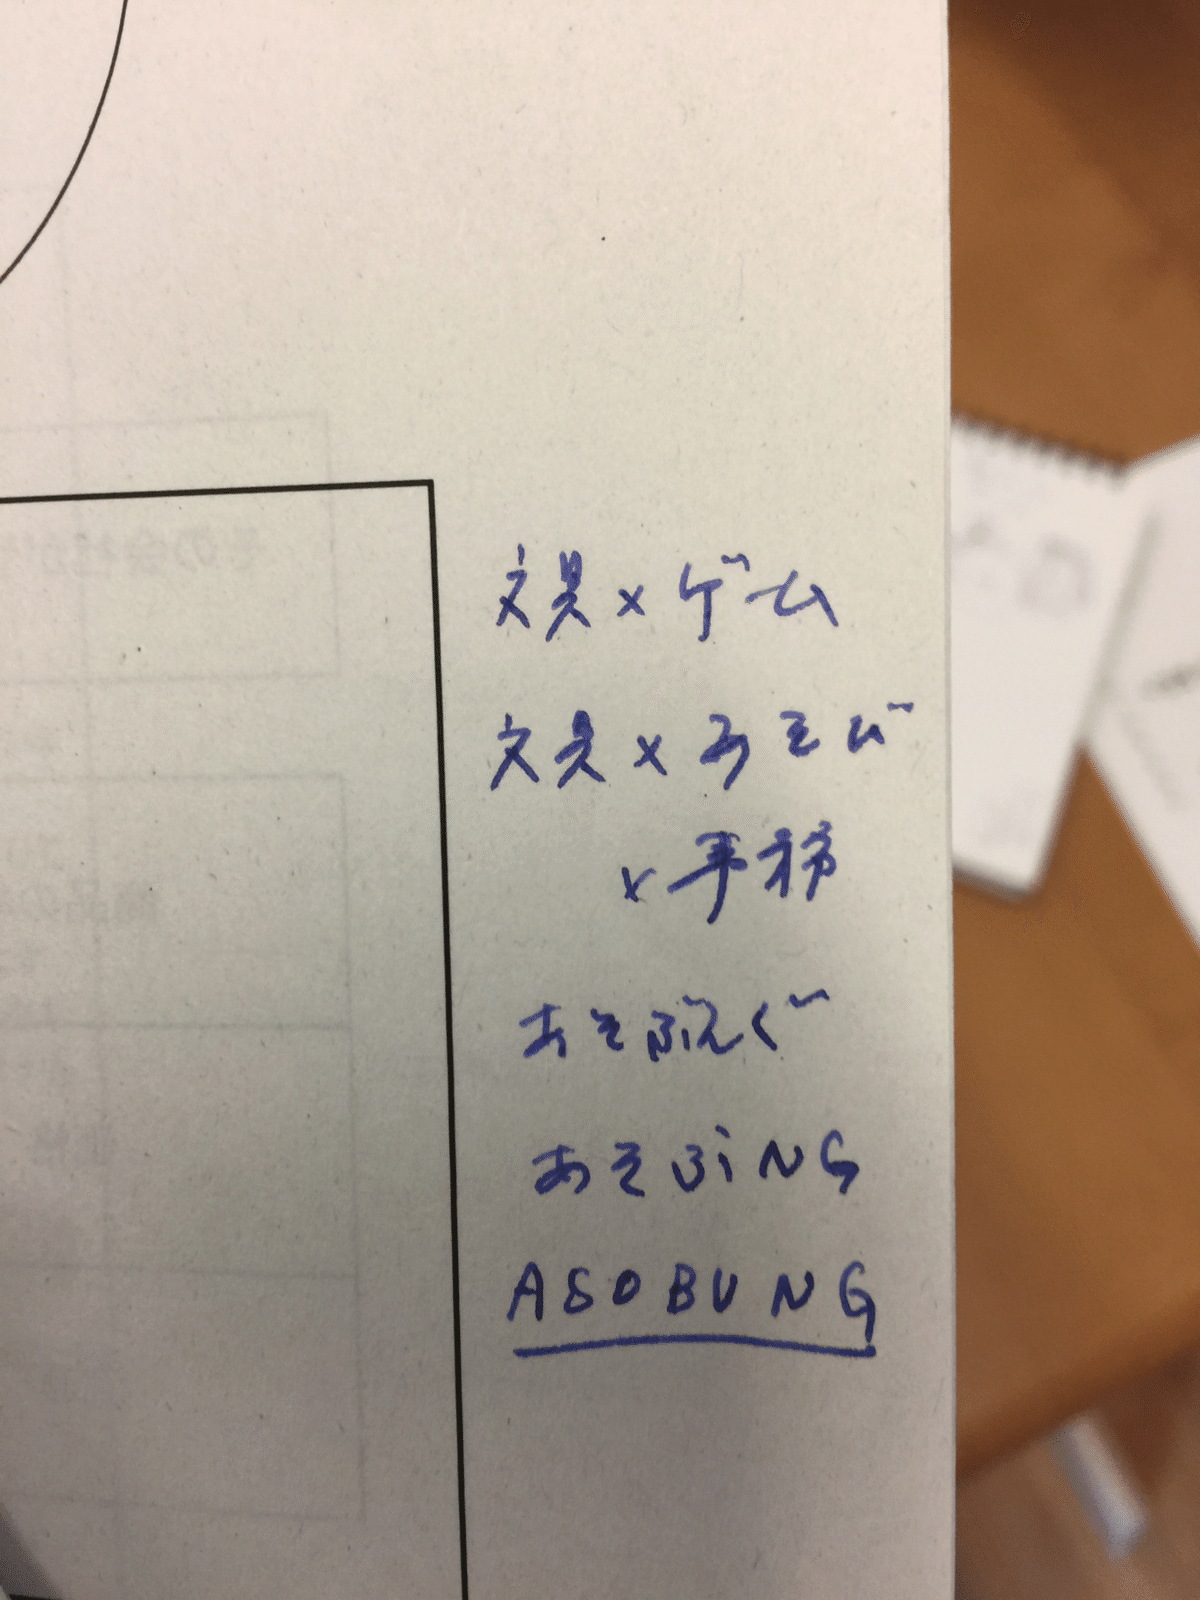 文具×ゲーム
文具×
×
あそぶんぐ
あそぶNG
ASOBUNG